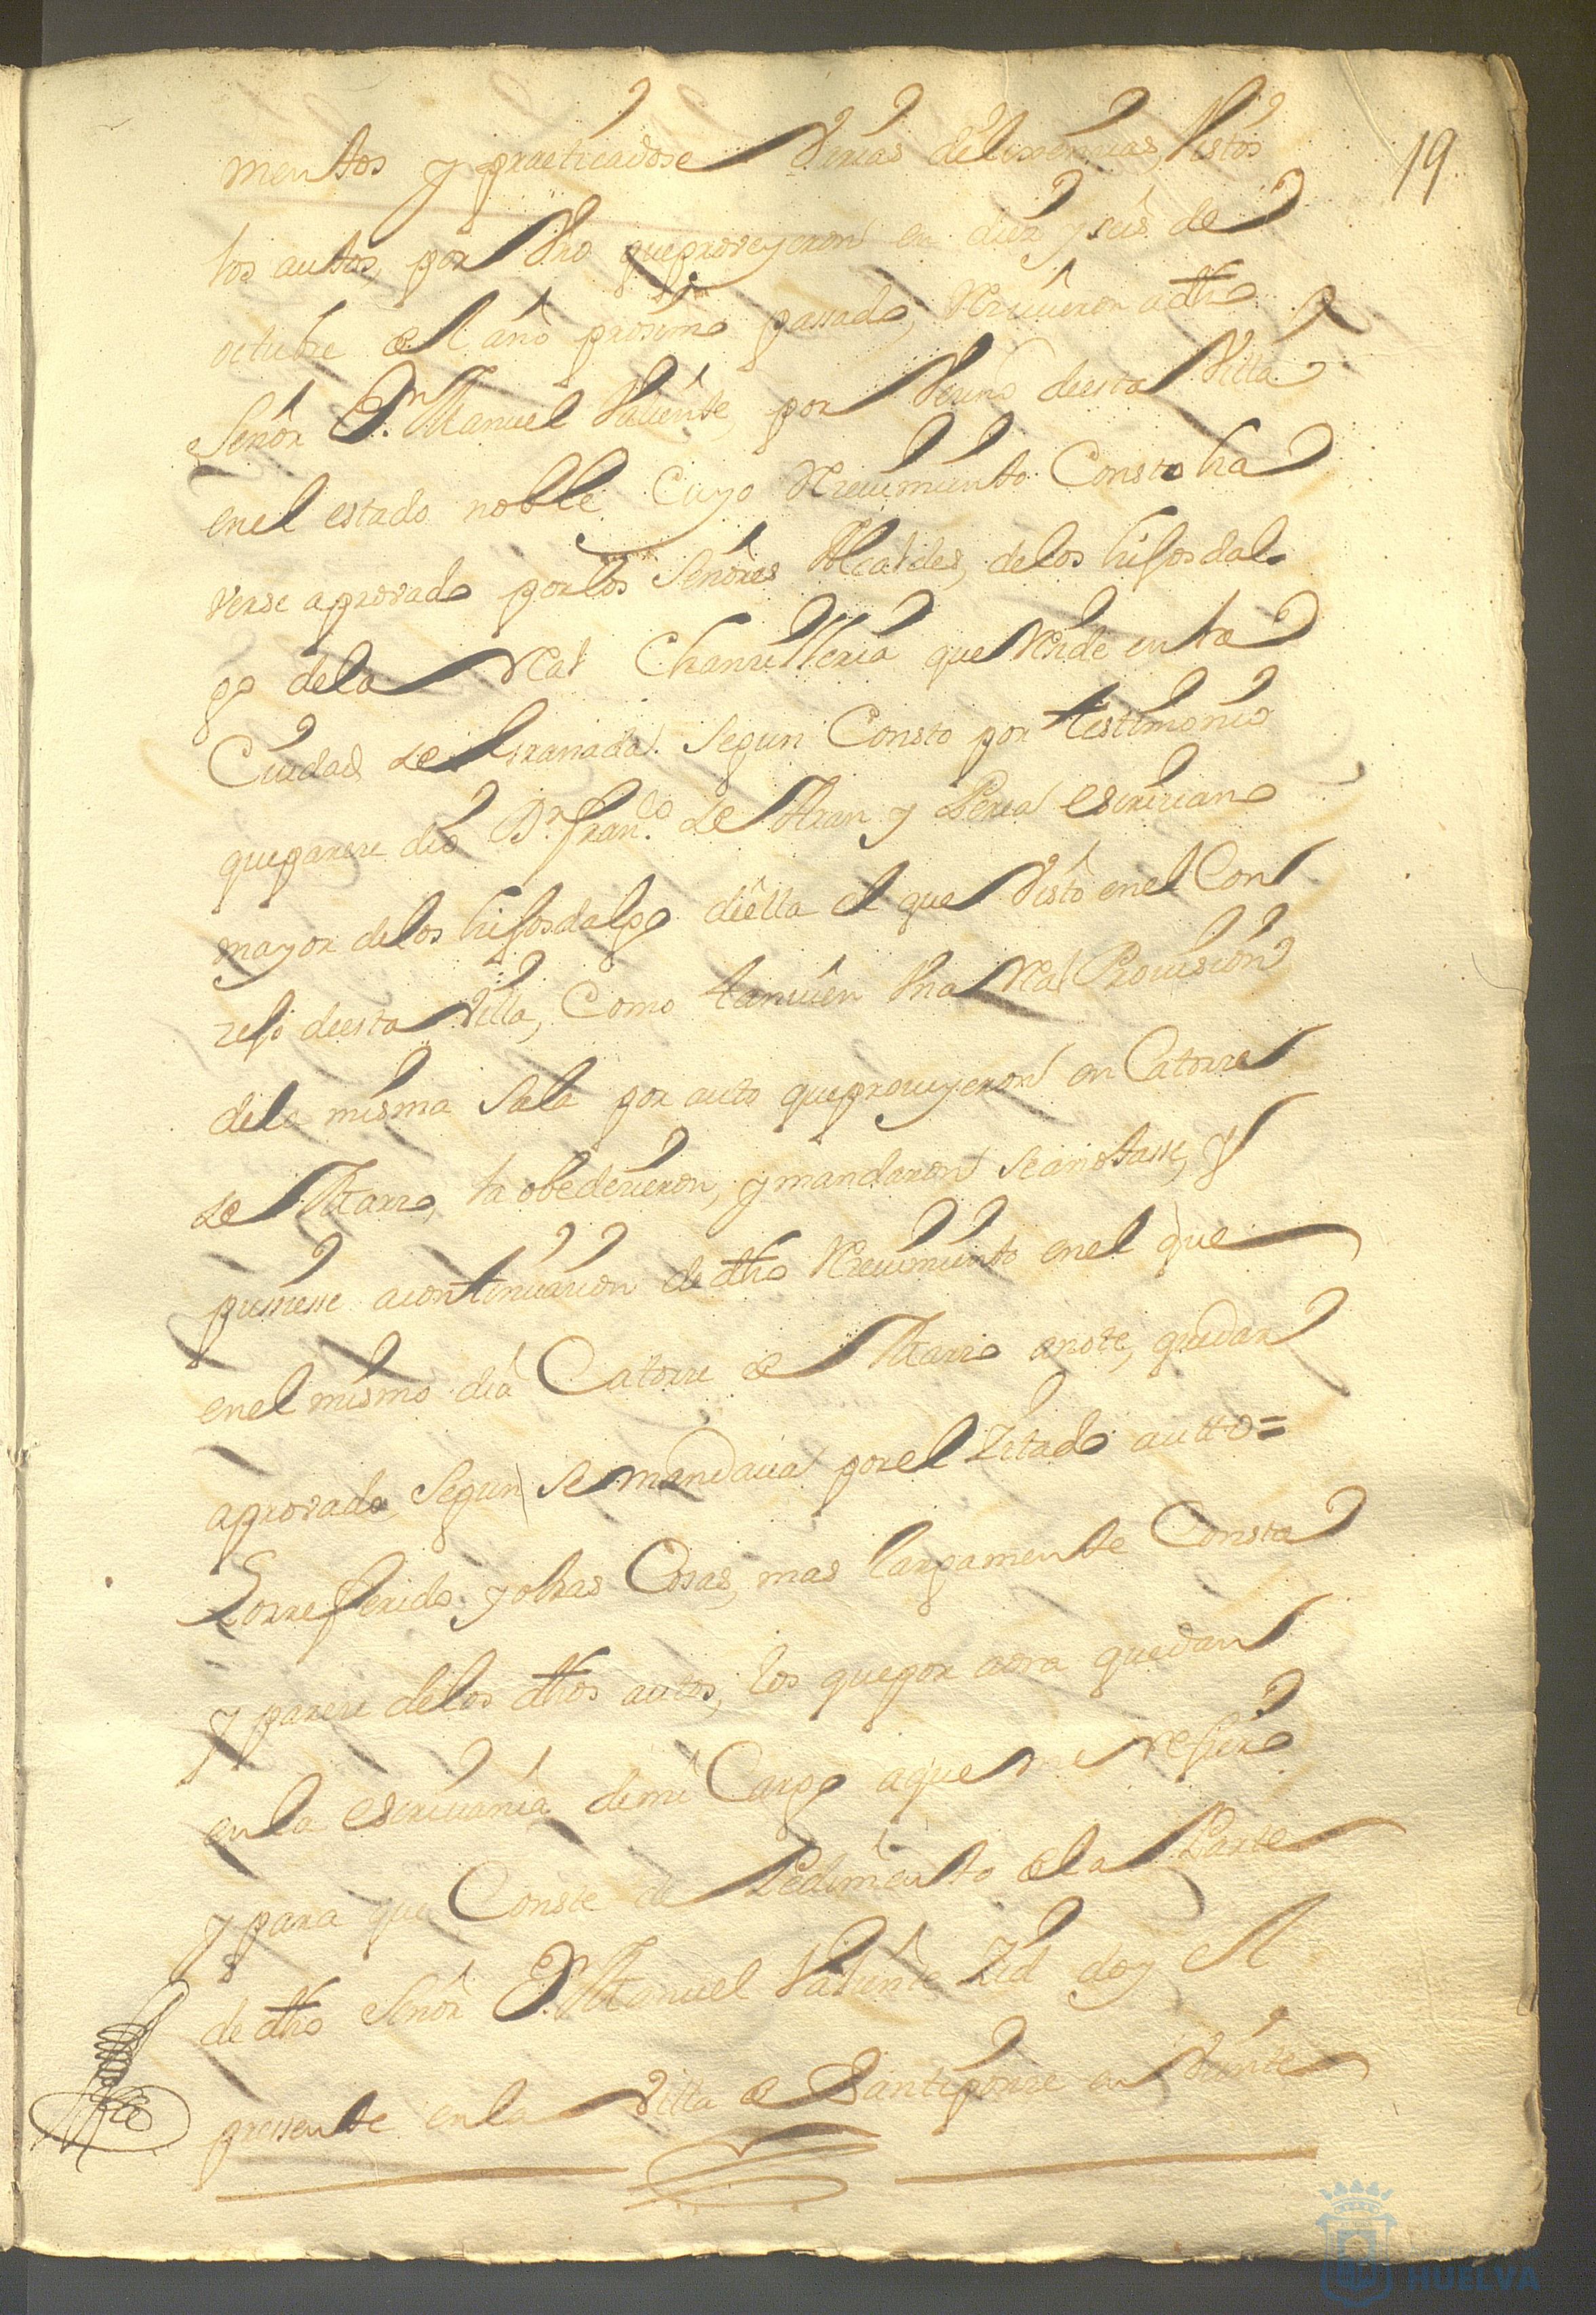 19
mentos y practicadose Varias delixencias, Vistos
los autos, por Vno que proveyeron en diez y seis de
octubre del año proximo passado, Rezivieron a dho
Señor Dn. Manuel Valiente, por Vezino de esta Villa
en el estado noble Cuyo Rezivimiento Consto ha
verse aprovado por los Señores Alcaldes, de los hijosdal
go de la Real Chanzilleria que Reside en la
Ciudad de Granada. Segun Consto por testimonio
que pareze dio Dn. Franco. de Aran y Perea escriviano
mayor de los hijosdalgo de ella el que Visto en el Con
zejo de esta Villa, Como tanvien Vna Real Provision
de la misma Sala por auto que proveyeron en Catorze
de Marzo, la obedezieron, y mandaron se anotasse, y
pusiesse a continuazion de dho Rezivimiento en el que
en el mismo dia Catorze de Marzo anote, quedar
aprovado Segun se mandava por el Zitado autto=
Lo rreferido y otras Cosas, mas largamente Consta
y pareze de los dhos autos, los que por aora quedan
en la escrivania de mi Cargo a que me refiero
y para que Conste de Pedimento de la Parte
de dho Señor Dn. Manuel Valiente Zid doy el
pressente en la Villa de Santiponze en Veinte
HUELVA